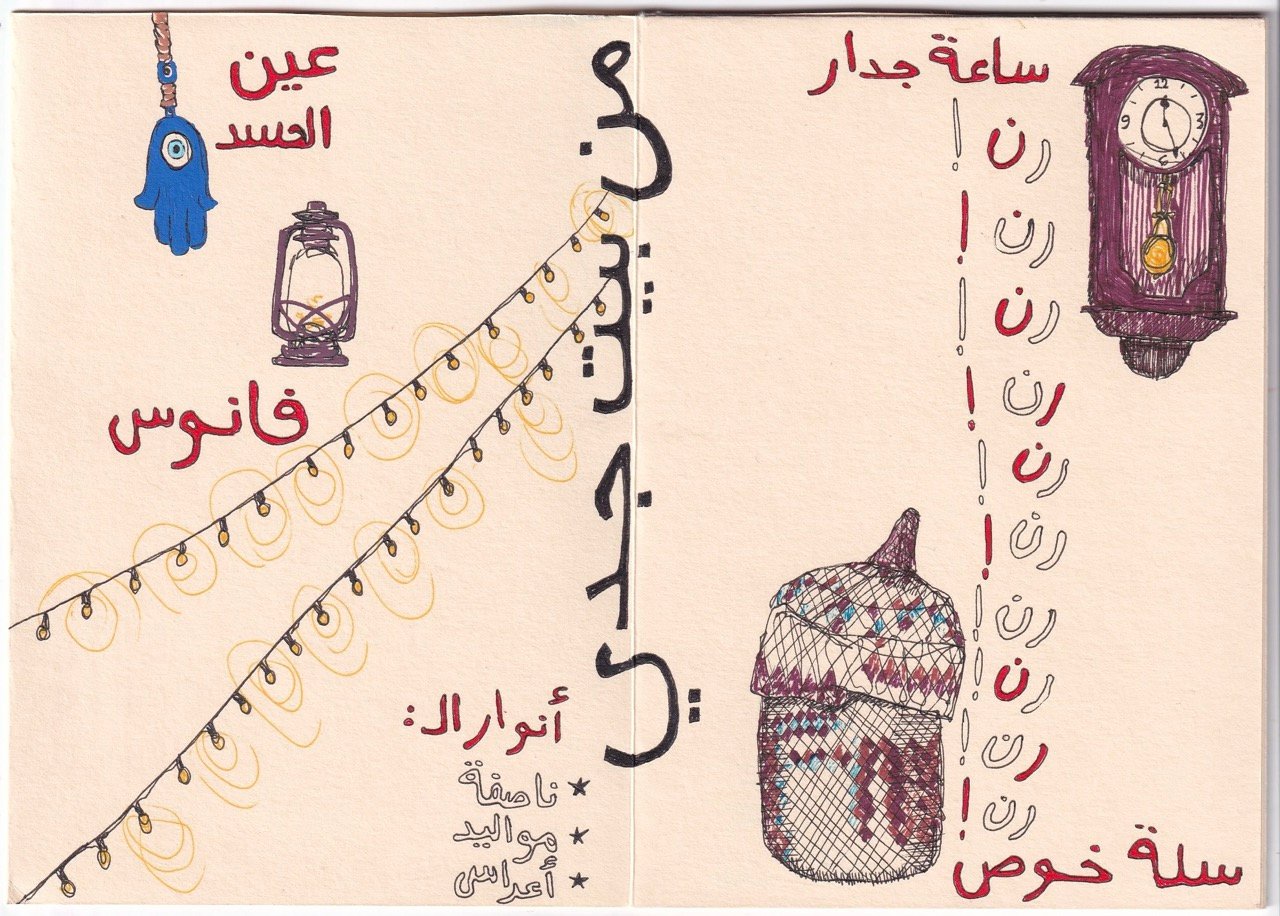 من بيت جدي
ساعة جدار
رن !
رن !
رن !
رن !
رن !
رن !
رن !
رن !
رن !
رن !
سلة خوص
عين
الحسد
فانوس
أنوار الـ:
★ ناصفة
★ مواليد
★ أعراس
12
3
6
9